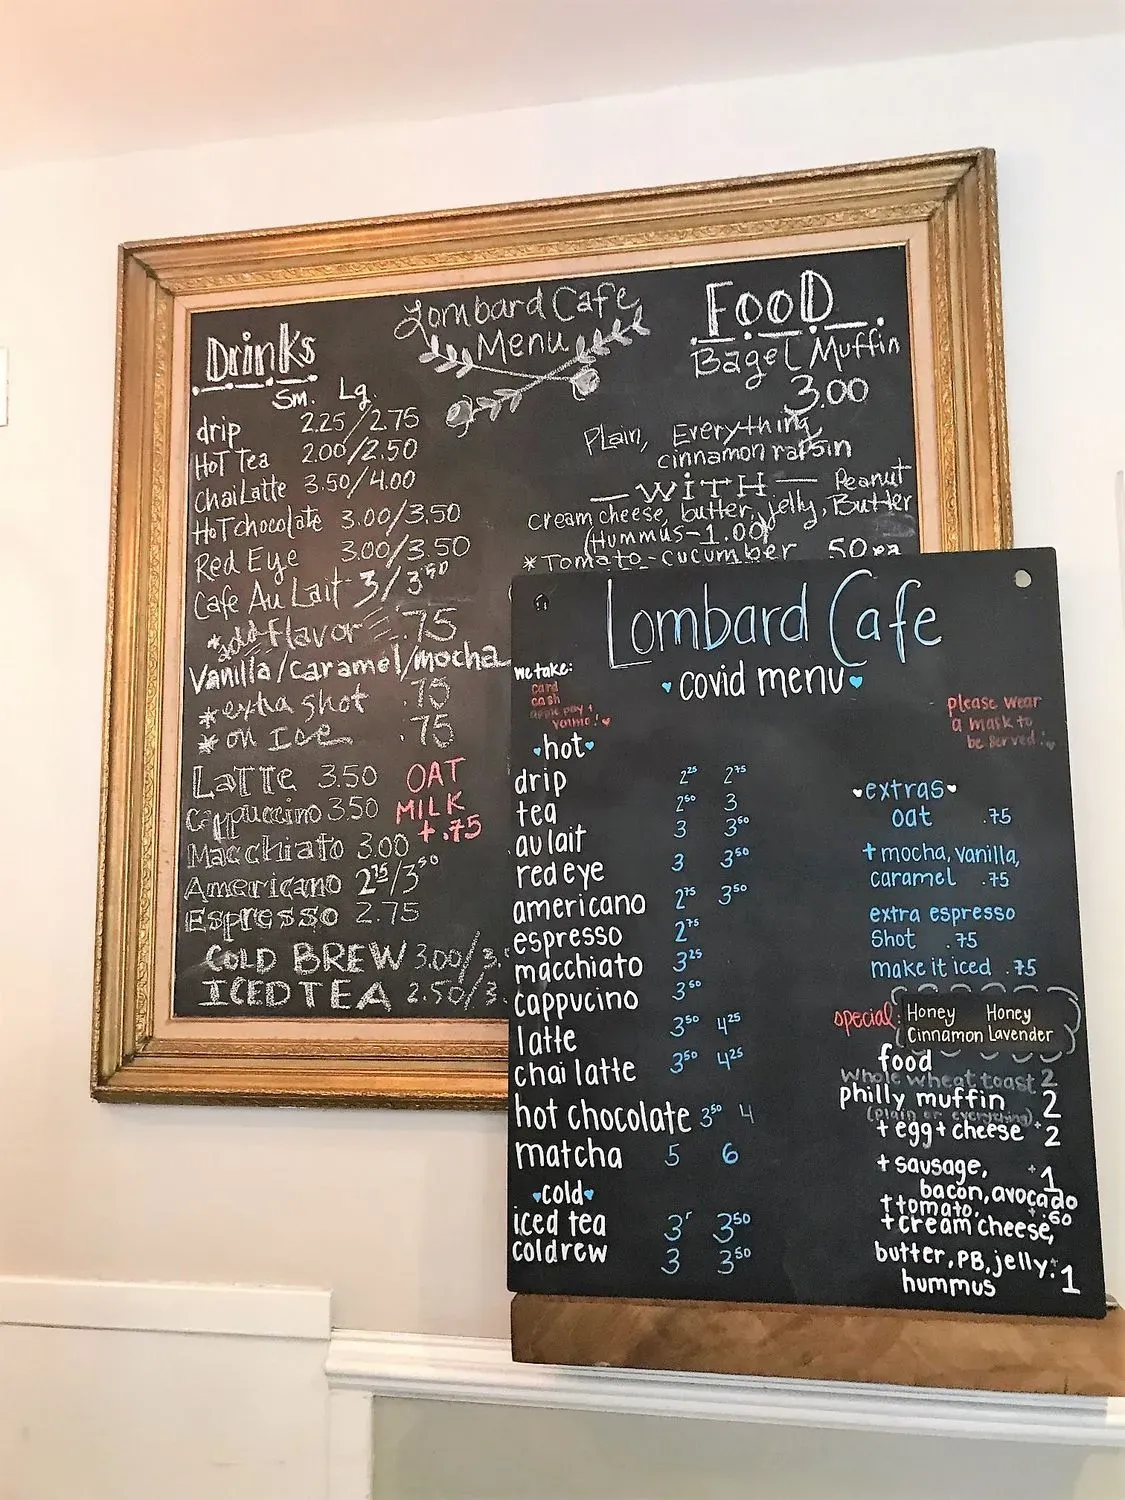 Lombard Cafe
Menu
Drinks
Sm. Lg.
drip 2.25/2.75
HoT Tea 2.00/2.50
Chai Latte 3.50/4.00
HoT chocolate 3.00/3.50
Red Eye 3.00/3.50
Cafe Au Lait 3/3.50
*add Flavor .75
Vanilla/caramel/mocha
*extra shot .75
*on Ice .75
Latte 3.50
Cappuccino 3.50
OAT
MILK
+.75
Macchiato 3.00
Americano 2.75/3.50
Espresso 2.75
COLD BREW 3.00/3.
ICED TEA 2.50/3.
FOOD
Bagel Muffin
3.00
Plain, Everything
cinnamon raisin
— WITH — Peanut
cream cheese, butter, jelly, Butter
(Hummus-1.00)
*Tomato-cucumber .50 ea
Lombard Cafe
covid menu
we take:
card
cash
apple pay +
venmo!
please wear
a mask to
be served!
hot
drip 2.25 2.75
tea 2.50 3
au lait 3 3.50
red eye 3 3.50
americano 2.75 3.50
espresso 2.75
macchiato 3.25
cappucino 3.50
latte 3.50 4.25
chai latte 3.50 4.25
hot chocolate 3.50 4
matcha 5 6
cold
iced tea 3 3.50
coldrew 3 3.50
extras
oat .75
+ mocha, vanilla,
caramel .75
extra espresso
shot .75
make it iced .75
special: Honey Honey
Cinnamon Lavender
food
Whole wheat toast 2
philly muffin 2
(plain or everything)
+ egg + cheese +2
+ sausage, +1
bacon, avocado
+ tomato, +.60
+ cream cheese,
butter, PB, jelly, +1
hummus